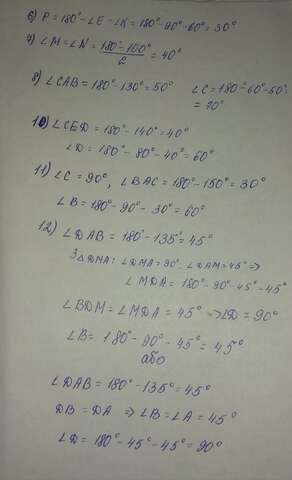 6) P = 180° - ∠E - ∠K = 180° - 90° - 60° = 30°
7) ∠M = ∠N = (180° - 100°)/2 = 40°
8) ∠CAB = 180° - 130° = 50° ∠C = 180° - 60° - 50° = 70°
10) ∠CED = 180° - 140° = 40°
∠D = 180° - 80° - 40° = 60°
11) ∠C = 90°, ∠BAC = 180° - 150° = 30°
∠B = 180° - 90° - 30° = 60°
12) ∠DAB = 180° - 135° = 45°
З △DMA: ∠DMA = 90° ∠DAM = 45° ⇒
∠MDA = 180° - 90° - 45° - 45°
∠BDM = ∠MDA = 45° ⇒ ∠D = 90°
∠B = 180° - 90° - 45° = 45°
або
∠DAB = 180° - 135° = 45°
DB = DA ⇒ ∠B = ∠A = 45°
∠D = 180° - 45° - 45° = 90°